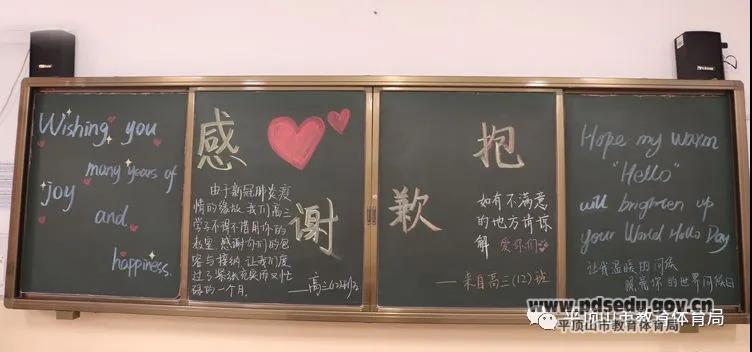 Wishing you
many years of
joy
and
happiness.
感谢
由于新冠肺炎疫
情的缘故,我们高三
学子不得不借用你们的
教室,感谢你们的包
容与接纳,让我们度
过了紧张充实而又忙
碌的一个月。
抱歉
如有不满意
的地方请谅
解 爱你们
——来自高三(12)班
Hope my warm
"Hello"
will brighten up
your World Hello Day.
让我温暖的问候
照亮你的世界问候日
www.pdsedu.gov.cn
平顶山市教育体育局
平顶山市教育体育局